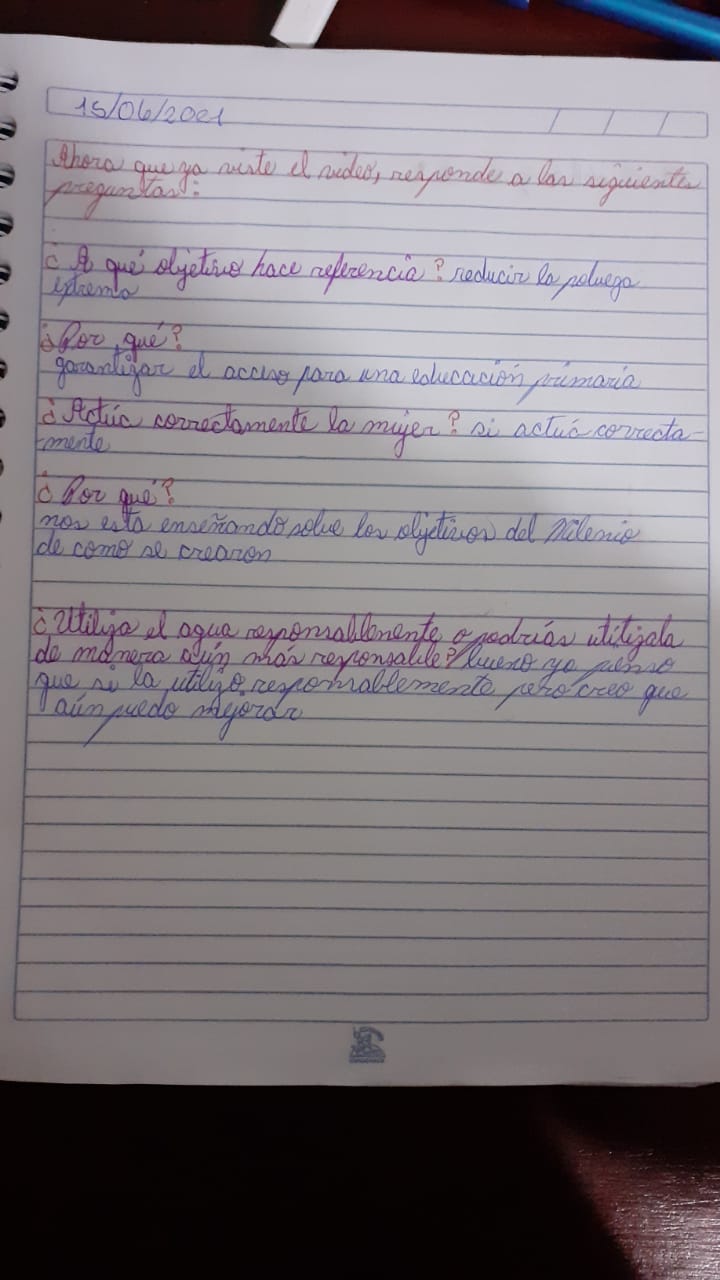 15/06/2021
Ahora que ya viste el video, responde a las siguientes
preguntas:
¿A qué objetivo hace referencia? reducir la pobuega
extrema
¿Por qué?
garantizar el acceso para una educación primaria
¿Actúa correctamente la mujer? si actuá correcta-
-mente
¿Por qué?
nos esta enseñando sobre los objetivos del Milenio
de como se crearon
¿Utiliza el agua responsablemente o podrías utilizala
de manera aún más responsable? bueno yo pienso
que si la utilizo responsablemente pero creo que
aún puedo mejorar